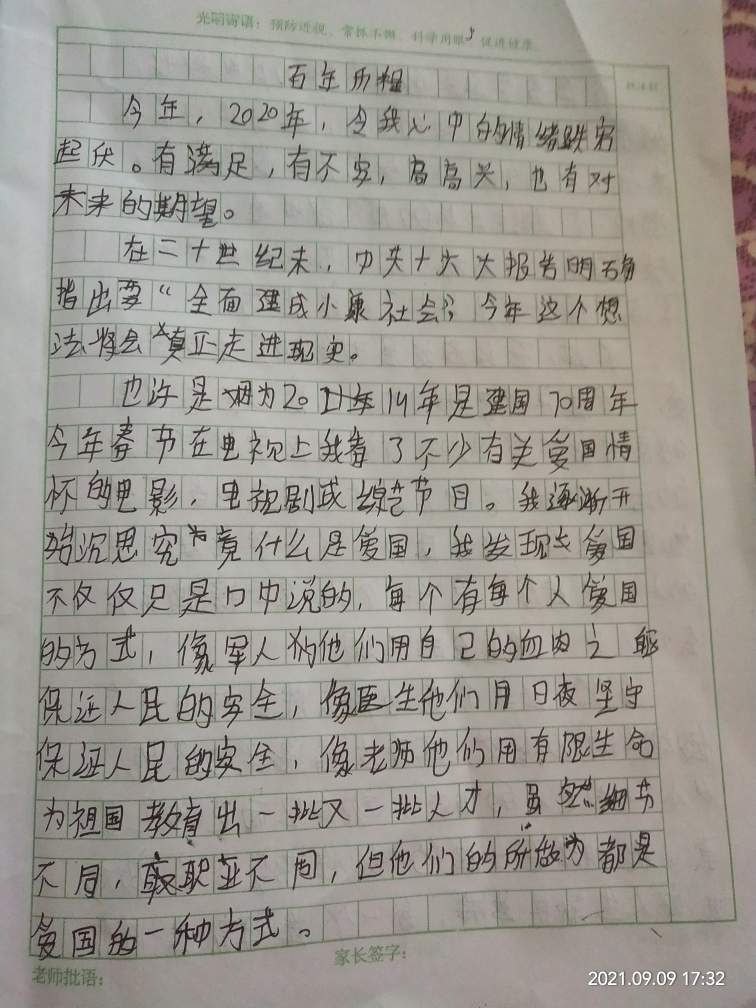 光明寄语：预防近视、常抓不懈、科学用眼、促进健康
百年历
今年，2020年，令我心中的情绪跌宕
起伏。有满足，有不安，高高兴，也有对
未来的期望。
在二十世纪末，中共十六大报告明确
指出要“全面建成小康社会”，今年这个想
法将会真正走进现实。
也许是因为2019年是建国70周年
今年春节在电视上我看了不少有关爱国情
怀的电影，电视剧或综艺节目。我逐渐开
始沉思究竟什么是爱国，我发现爱国
不仅仅只是口中说的，每个有每个人爱国
的方式，像军人他们用自己的血肉之躯
保证人民的安全，像医生他们用日夜坚守
保证人民的安全，像老师他们用有限生命
为祖国教育出一批又一批人才，虽然细节
不同，职业不同，但他们的所做为都是
爱国的一种方式。
家长签字：
老师批语：
2021.09.09 17:32